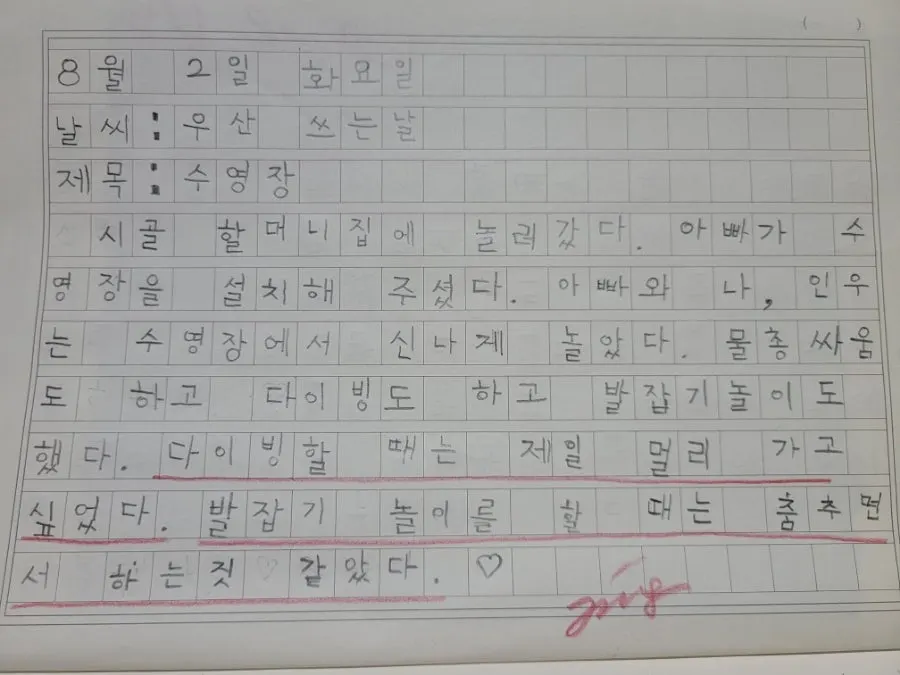 8월 2일 화요일
날씨: 우산 쓰는날
제목: 수영장
시골 할머니집에 놀러갔다. 아빠가 수
영장을 설치해 주셨다. 아빠와 나, 인우
는 수영장에서 신나게 놀았다. 물총싸움
도 하고 다이빙도 하고 발잡기놀이도
했다. 다이빙할 때는 제일 멀리 가고
싶었다. 발잡기 놀이를 할 때는 춤추면
서 하는짓 같았다. ♡